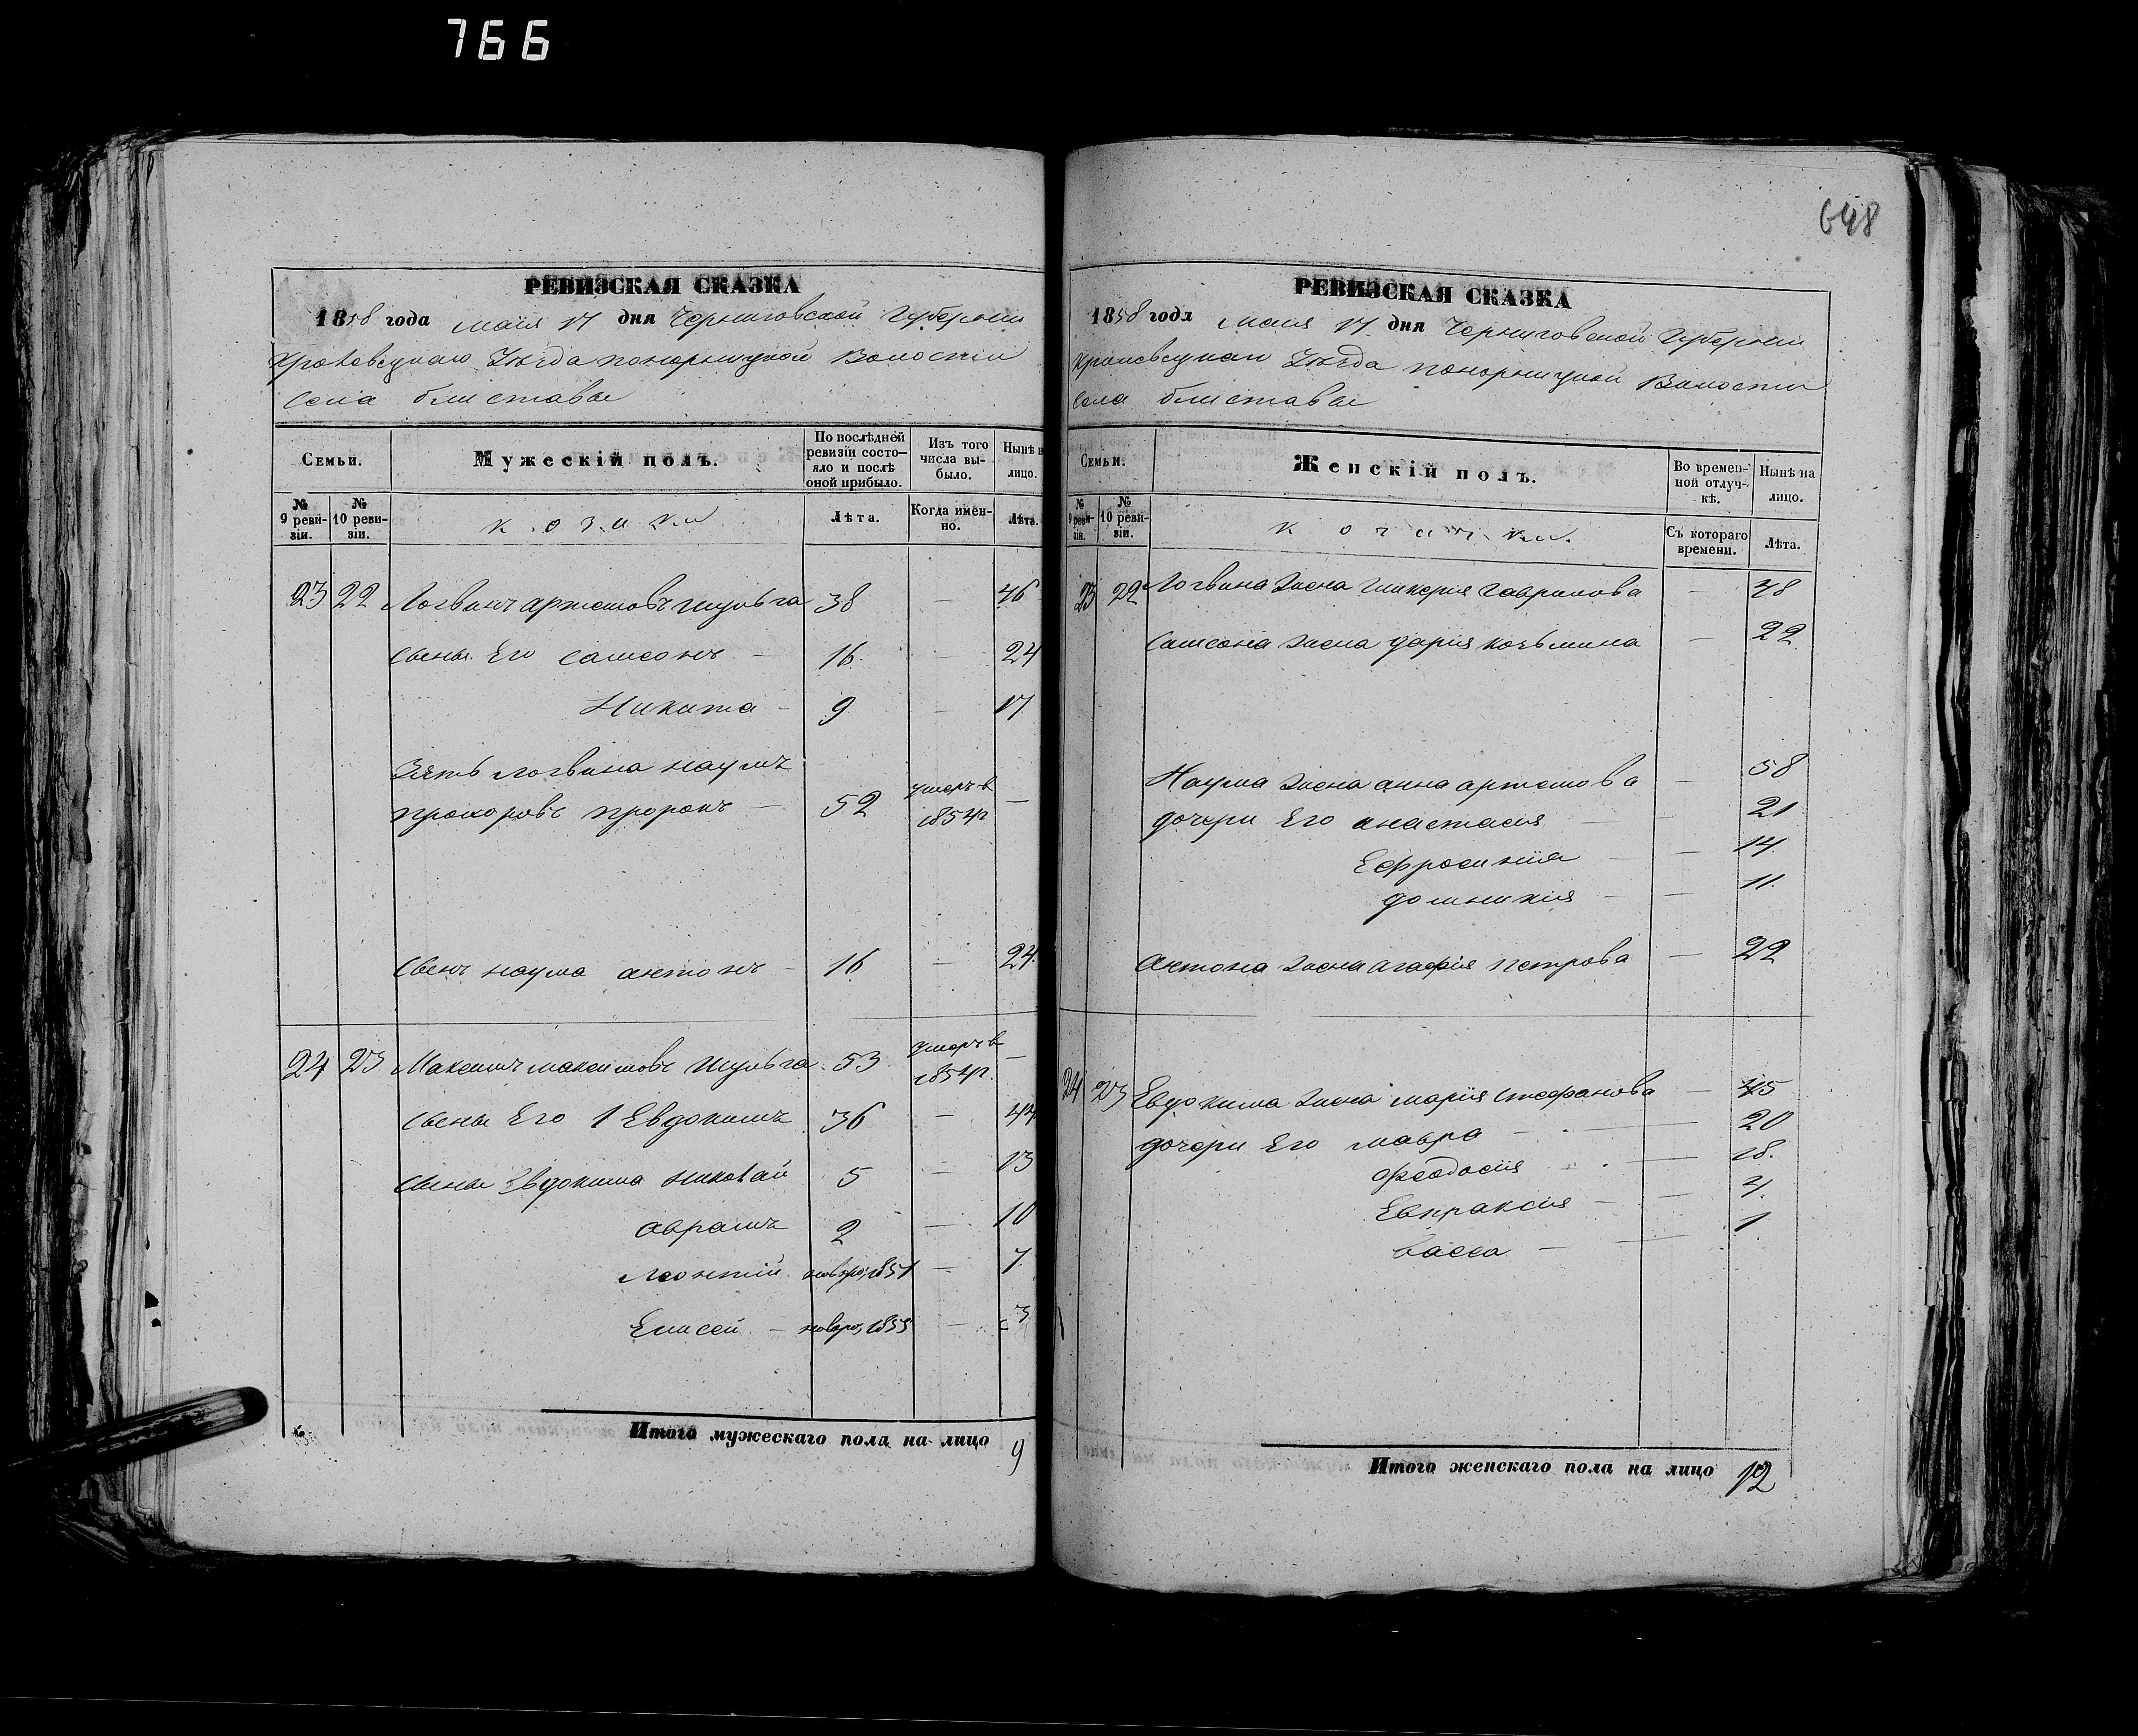 766
648
РЕВИЗСКАЯ СКАЗКА
1858 года маія 17 дня Черниговской Губерніи
Кролевецкаго Уѣзда понорницкой Волости
Села блиставы
Семьи.
Мужескій полъ.
По послѣдней ревизіи состо-
яло и послѣ оной прибыло.
Изъ того числа вы-
было.
Нынѣ н
лицо.
№ 9 реви-
зіи.
№ 10 реви-
зіи.
козаки
Лѣта.
Когда имен-
но.
Лѣта.
23 22 Логвинъ артемовъ шульга 38 — 46
сыны Его самсонъ — 16 — 24
Никита — 9 — 17
Зять логвина наумъ
прохоровъ пророкъ — 52 умеръ в 1854г —
сынъ наума антонъ — 16 — 24
24 23 Максимъ максимовъ шульга 53 умеръ в 1854г. —
сыны Его 1 Евдокимъ 36 — 44
сыны Евдокима николай 5 — 13
аврамъ 2 — 10
Леонтій новоро, 1851 — 7
Елисей — новоро, 1855 — 3
Итого мужескаго пола на лицо 9
РЕВИЗСКАЯ СКАЗКА
1858 года маія 17 дня Черниговской Губерніи
Кролевецкаго Уѣзда понорницкой Волости
Села блиставы
Семьи.
Женскій полъ.
Во времен-
ной отлуч-
кѣ.
Нынѣ на
лицо.
№ 9 реви-
зіи.
№ 10 реви-
зіи.
козачки
Съ котораго
времени.
Лѣта.
23 22 Логвина жена гликерія гаврилова — 48
самсона жена дарія козьмина — 22
Наума жена анна артемова — 58
дочери Его анастасія — 21
Ефросинія — 14
домникія — 11
антона жена агафія петрова — 22
24 23 Евдокима жена марія стефанова — 45
дочери Его мавра — 20
Феодосія — 18
Евпраксія — 4
васса — 1
Итого женскаго пола на лицо 12